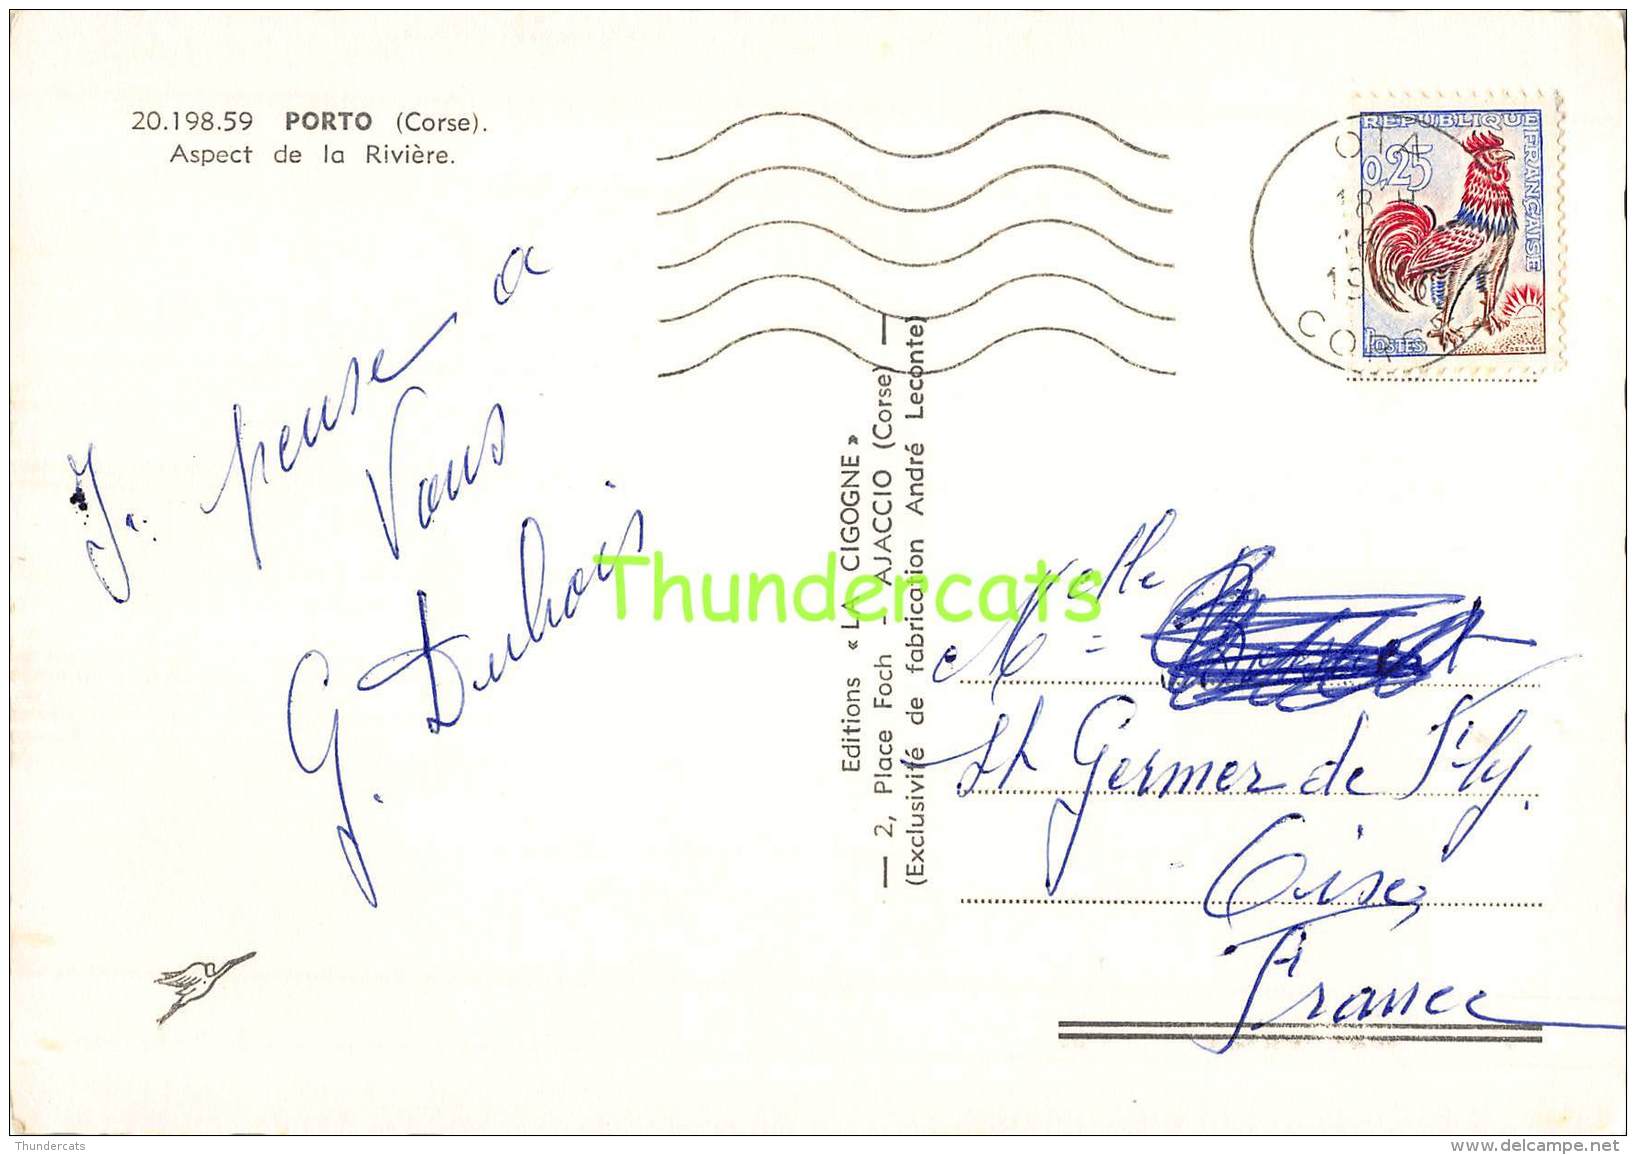 20.198.59 PORTO (Corse).
Aspect de la Rivière.
J. pense a
Vous
G. Dubois
Editions « LA CIGOGNE »
— 2, Place Foch - AJACCIO (Corse) —
(Exclusivité de fabrication André Leconte)
REPUBLIQUE FRANÇAISE
0,25
POSTES
DECARIS
OTA
18 H
CORSE
Melle
St Germer de Fly.
Oise,
France
Thundercats
Thundercats
www.delcampe.net